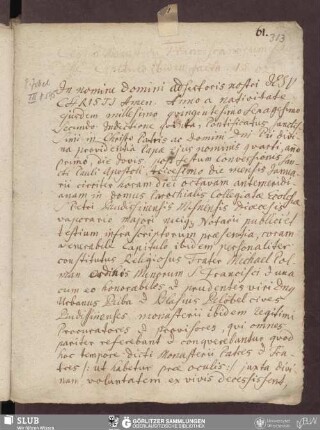 61.
313
In nomine Domini adjectoris nostri JESU
CHRISTI Amen. Anno a nativitate
ejusdem millesimo quingentesimo sexagesimo
secundo Indictione quinta, Pontificatus sanctis
simi in Christo Patris ac Domini, Dni Pii divi
na providentia Papae hujus nominis quarti, anno
primo, die Jovis post festum conversionis San
cti Pauli Apostoli, tricesimo die mensis Janua
rii circiter horam diei octavam antemeridi
anam in domus Praebialis Collegiatae Ecclesiae
S. Petri Budissinensis Misnensis Dioecesis
vaporario majori meique Notarii publici et
testium infrascriptorum praesentia, coram
venerabili Capitulo ibidem personaliter
constitutus Religiosus Frater Michael Pol
man Ordinis Minorum S. Francisci & una
cum eo honorabiles & prudentes viri Dni
Urbanus & Blasius cives
Budissinenses monasterii ibidem legitimi
Procuratores & provisores, qui omnes
pariter referebant & conquerebantur quod
hoc tempore dicti Monasterii Patres & Fra
tres /: ut habetur prae oculis :/ juxta divi
nam voluntatem ex vivis decessissent,
SLUB
Wir führen Wissen.
GÖRLITZER SAMMLUNGEN
OBERLAUSITZISCHE BIBLIOTHEK